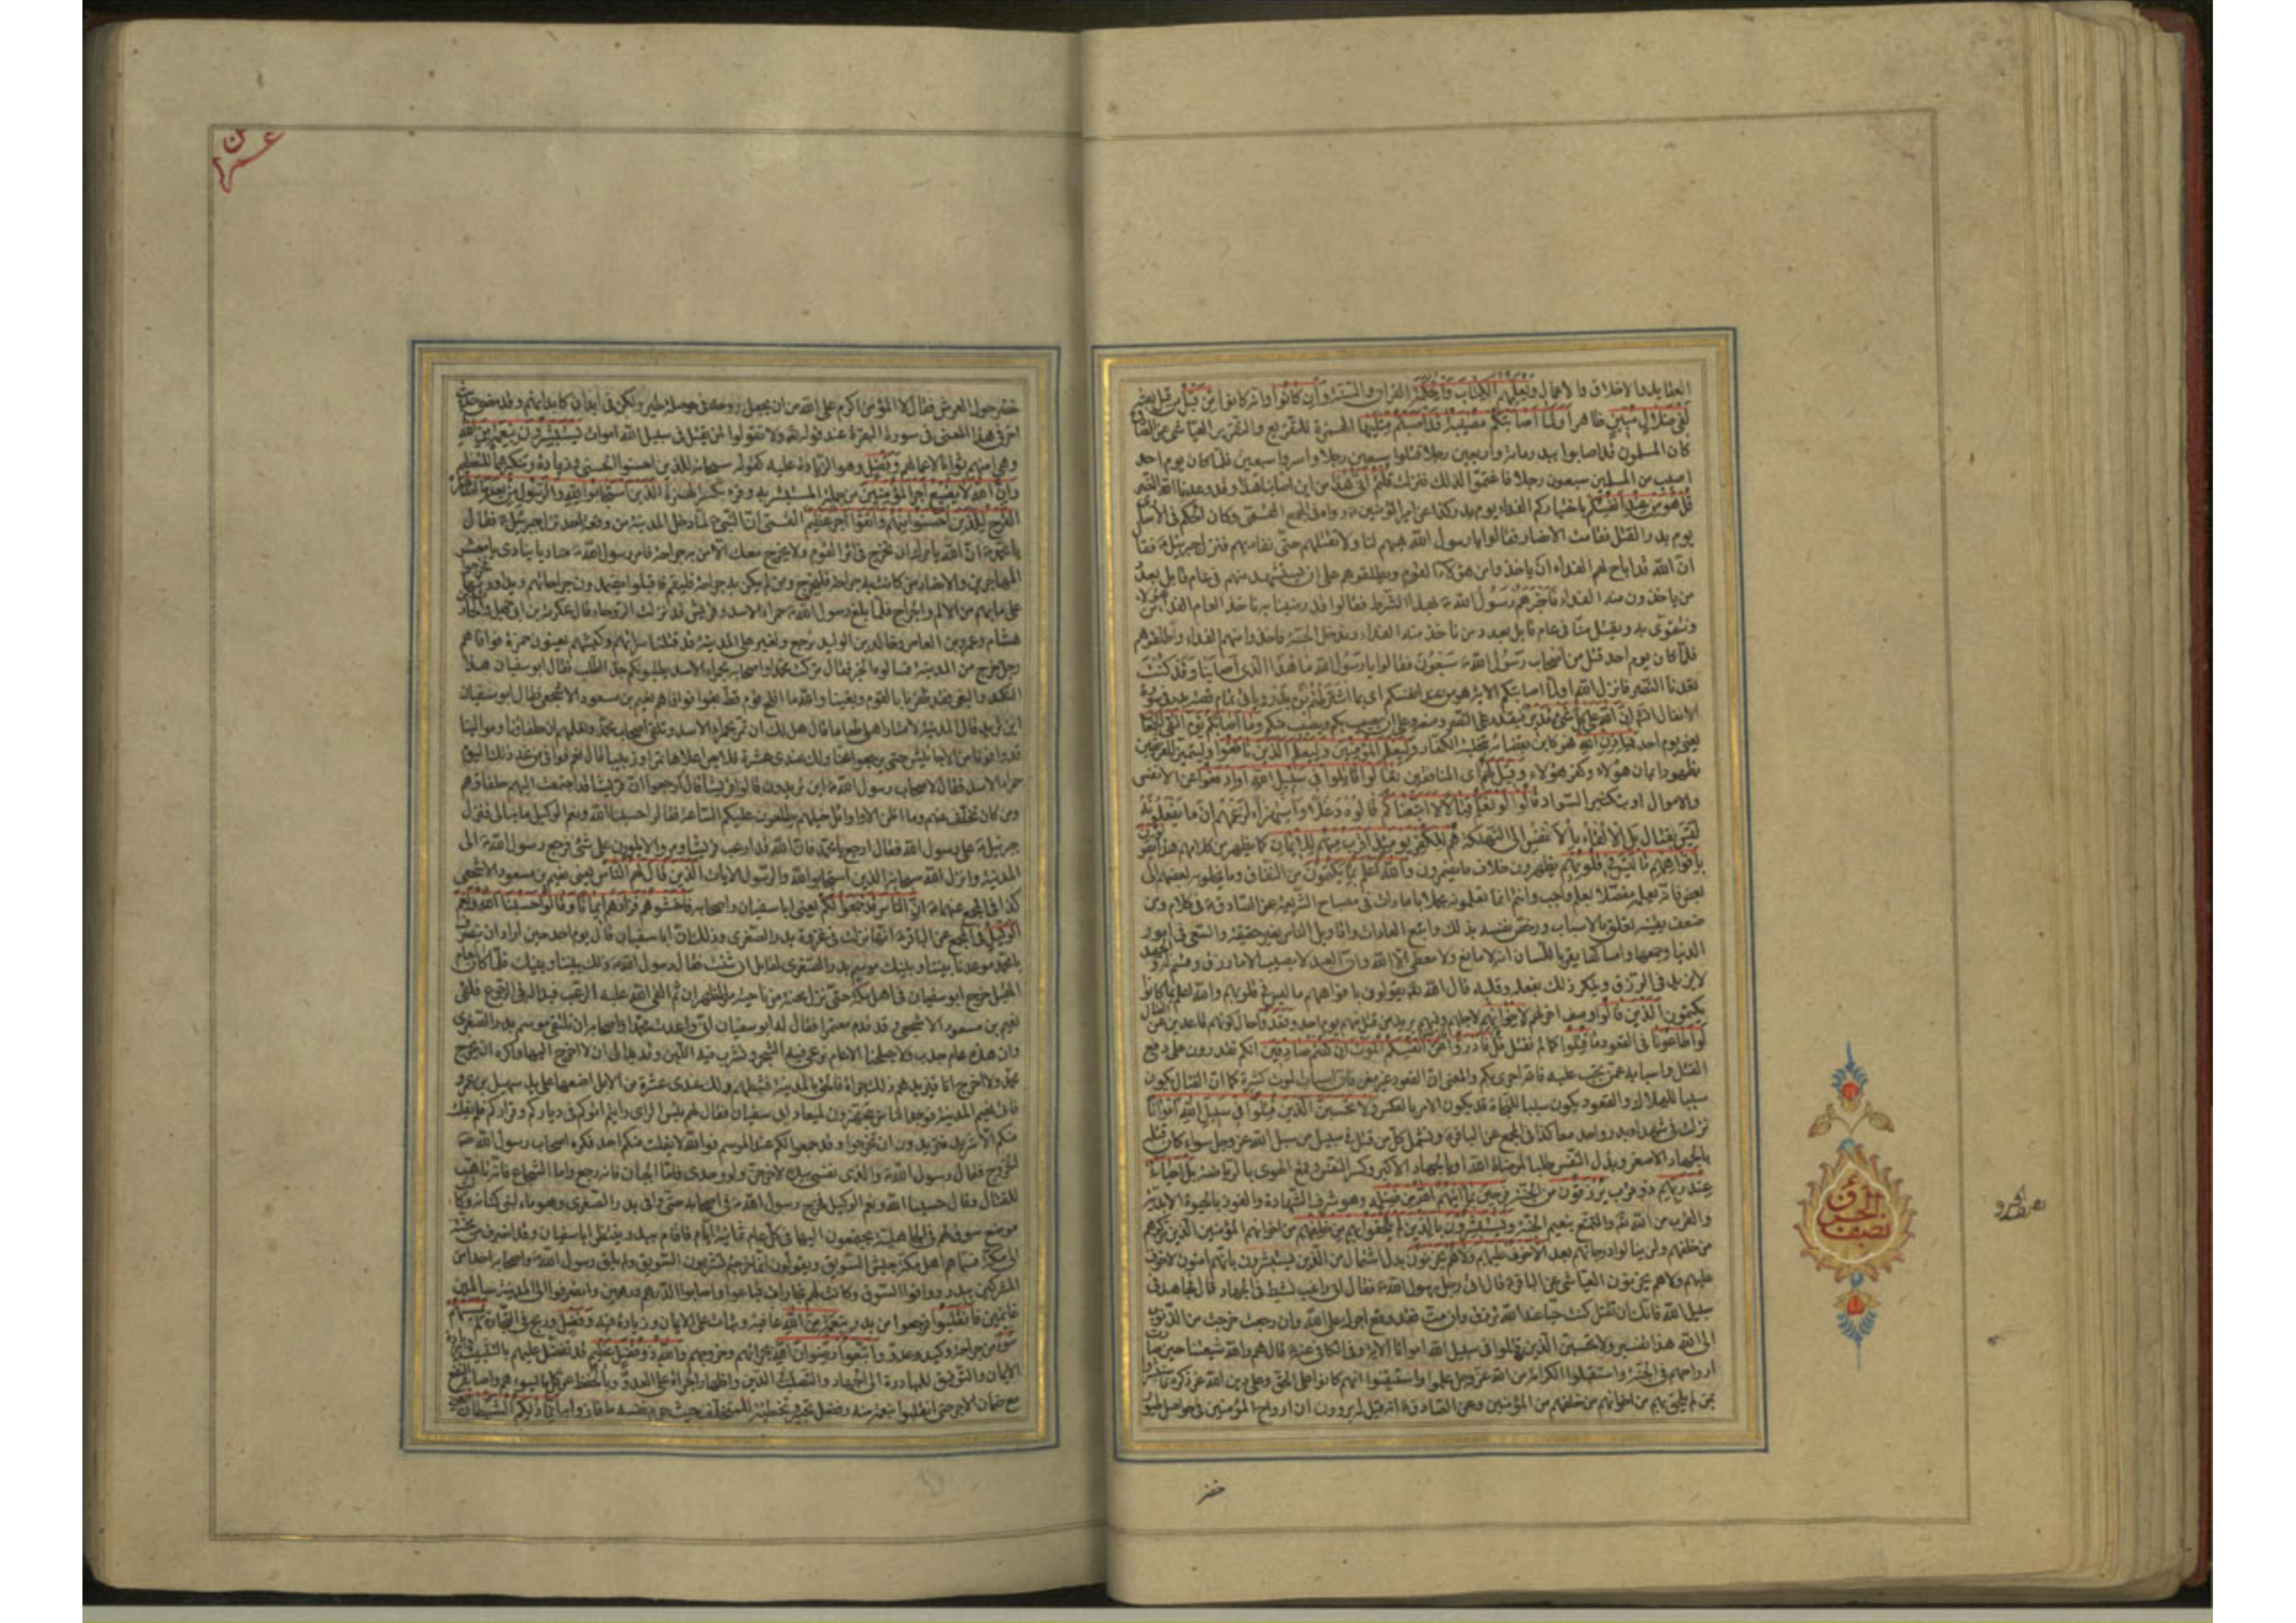 العقايد والاخلاق والاعمال ويعلمهم الكتاب والحكمة القران والسنة وان كانوا وانه كانوا من قبل من قبل بعثه
لفى ضلال مبين ظاهر اولما اصابتكم مصيبة قد اصبتم مثليها الهمزة للتقريع والتقرير العياشى عن الصادق
كان المسلمون قد اصابوا ببدر مائة واربعين رجلا قتلوا سبعين رجلا واسروا سبعين فلما كان يوم احد
اصيب من المسلمين سبعون رجلا فاغتموا لذلك فنزلت قلتم انى هذا من اين اصابنا هذا وقد وعدنا الله النصر
قل هو من عند انفسكم باختياركم الفداء يوم بدر كذا عن امير المؤمنين ع رواه فى المجمع القمى وكان الحكم فى الاسارى
يوم بدر القتل فقامت الانصار فقالوا يا رسول الله هبهم لنا ولا تقتلهم حتى نفاديهم فنزل جبرئيل ع فقال
ان الله قد اباح لهم الفداء ان ياخذوا من هؤلاء القوم ويطلقوهم على ان يستشهد منهم فى عام قابل بعدد
من ياخذون منه الفداء فاخبرهم رسول الله ص بهذا الشرط فقالوا قد رضينا به ناخذ العام الفداء من هؤلاء
ونتقوى به ويقتل منا فى عام قابل بعدد من ناخذ منه الفداء وندخل الجنة فاخذوا منهم الفداء واطلقوهم
فلما كان يوم احد قتل من اصحاب رسول الله ص سبعون فقالوا يا رسول الله ما هذا الذى اصابنا وقد كنت
تعدنا النصر فانزل الله اولما اصابتكم الاية هو من عند انفسكم اى بما اشترطتم يوم بدر وياتى تمام قصة بدر فى سورة
الانفال انش ان الله على كل شئ قدير فيقدر على النصر ومنعه وعلى ان يصيب بكم ويصيب منكم وما اصابكم يوم التقى الجمعان
يعنى يوم احد فباذن الله فهو كاين بقضائه تخلية الكفار وليعلم المؤمنين وليعلم الذين نافقوا وليتميز الفريقين
بظهور ايمان هؤلاء وكفر هؤلاء وقيل لهم اى المنافقين تعالوا قاتلوا فى سبيل الله او ادفعوا عن الانفس
والاموال او بتكثير السواد قالوا لو نعلم قتالا لاتبعناكم قالوه دغلا واستهزاء لزعمهم ان ما يفعلونه
ليس بقتال بل القاء بالانفس الى التهلكة هم للكفر يومئذ اقرب منهم للايمان كما يظهر من كلامهم هذا يقولون
بافواههم ما ليس فى قلوبهم يظهرون خلاف ما يضمرون والله اعلم بما يكتمون من النفاق وما يخلو به بعضهم الى
بعض فانه يعلمه مفصلا بعلم واجب وانتم انما تعلمونه مجملا بامارات فى مصباح الشريعة عن الصادق ع فى كلام ومن
ضعف يقينه تعلق بالاسباب ورخص لنفسه بذلك واتبع العادات واقاويل الناس بغير حقيقة والسعى فى امور
الدنيا وجمعها وامساكها يقر باللسان انه لا مانع ولا معطى الا الله وان العبد لا يصيب الا ما رزق وقسم له والجهد
لا يزيد فى الرزق وينكر ذلك بفعله وقلبه قال الله تعالى يقولون بافواههم ما ليس فى قلوبهم والله اعلم بما كانوا
يكتمون الذين قالوا وصف اخر لهم لاخوانهم لاجلهم وفيهم يريد من قتل منهم يوم احد وقعدوا حال كونهم قاعدين عن القتال
لو اطاعونا فى القعود ما قتلوا كما لم نقتل قل فادرؤا عن انفسكم الموت ان كنتم صادقين انكم تقدرون على دفع
القتل واسبابه عمن كتب عليه فانه احرى بكم والمعنى ان القعود غير مغن فان اسباب الموت كثيرة كما ان القتال يكون
سببا للهلاك والقعود يكون سببا للنجاة قد يكون الامر بالعكس ولا تحسبن الذين قتلوا فى سبيل الله امواتا
نزلت فى شهداء بدر واحد معا كذا فى المجمع عن الباقر ع وتشمل كل من قتل فى سبيل من سبل الله عز وجل سواء كان قتله
بالجهاد الاصغر وبذل النفس طلبا لمرضاة الله او بالجهاد الاكبر وكسر النفس وقمع الهوى بالرياضة بل احياء
عند ربهم ذو قرب يرزقون من الجنة فرحين بما اتيهم الله من فضله وهو شرف الشهادة والفوز بالحيوة الابدية
والقرب من الله تعالى والتمتع بنعيم الجنة ويستبشرون بالذين لم يلحقوا بهم من خلفهم من اخوانهم المؤمنين الذين تركوهم
من خلفهم ولم ينالوا درجاتهم بعد الا خوف عليهم ولا هم يحزنون بدل اشتمال من الذين يستبشرون بانهم امنون لا خوف
عليهم ولا هم يحزنون العياشى عن الباقر ع قال اتى رجل رسول الله ص فقال انى راغب نشيط فى الجهاد قال فجاهد فى
سبيل الله فانك ان تقتل كنت حيا عند الله ترزق وان مت فقد وقع اجرك على الله وان رجعت خرجت من الذنوب
الى الله هذا تفسير ولا تحسبن الذين قتلوا فى سبيل الله امواتا الاية وفى الكافى عنه ع قال هم والله شيعتنا حين صارت
ارواحهم فى الجنة واستقبلوا الكرامة من الله عز وجل علموا واستيقنوا انهم كانوا على الحق وعلى دين الله عز ذكره فاستبشروا
بمن لم يلحق بهم من اخوانهم من خلفهم من المؤمنين وعن الصادق ع انه قيل له يروون ان ارواح المؤمنين فى حواصل طيور
خضر
نصف الحزب
خضر حول العرش فقال لا المؤمن اكرم على الله من ان يجعل روحه فى حوصلة طير ولكن فى ابدان كابدانهم وقد مضى حديث
اخر فى هذا المعنى فى سورة البقرة عند قوله تعالى ولا تقولوا لمن يقتل فى سبيل الله اموات يستبشرون بنعمة من الله
وفضل وهو الزيادة عليه كقوله سبحانه للذين احسنوا الحسنى وزيادة وتنكيرهما للتعظيم
وان الله لا يضيع اجر المؤمنين من جملة المستبشر به وقرء بكسر الهمزة الذين استجابوا لله والرسول من بعد ما اصابهم
القرح للذين احسنوا منهم واتقوا اجر عظيم القمى ان النبى ص لما دخل المدينة من وقعة احد نزل جبرئيل ع فقال
يا محمد ص ان الله يامرك ان تخرج فى اثر القوم ولا يخرج معك الا من به جراحة فامر رسول الله ص مناديا ينادى يا معشر
المهاجرين والانصار من كانت به جراحة فليخرج ومن لم يكن به جراحة فليقم فاقبلوا يضمدون جراحاتهم ويداوونها فخرجوا
على ما بهم من الالم والجراح فلما بلغ رسول الله ص حمراء الاسد وقريش قد نزلت الروحاء قال عكرمة بن ابى جهل والحارث بن
هشام وعمرو بن العاص وخالد بن الوليد نرجع ونغير على المدينة قد قتلنا سراتهم وكبشهم يعنون حمزة فوافاهم
رجل خرج من المدينة فسالوه الخبر فقال تركت محمدا واصحابه بحمراء الاسد يطلبونكم جد الطلب فقال ابو سفيان هذا
النكد والبغى فقد ظفرنا بالقوم وبغينا والله ما افلح قوم قط بغوا فوافاهم نعيم بن مسعود الاشجعى فقال ابو سفيان
اين تريد قال المدينة لامتار لاهلى طعاما قال هل لك ان تمر بحمراء الاسد وتلقى اصحاب محمد وتعلمهم ان حلفاءنا وموالينا
قد وافونا من الاحابيش حتى يرجعوا عنا ولك عندى عشرة قلائص املاها تمرا وزبيبا قال نعم فوافى من غد ذلك اليوم
حمراء الاسد فقال لاصحاب رسول الله ص اين تريدون قالوا قريشا قال ارجعوا ان قريشا قد اجتمعت اليهم حلفاؤهم
ومن كان تخلف عنهم وما اظن الا اوائل خيلهم يطلعون عليكم الساعة فقالوا حسبنا الله ونعم الوكيل ما نبالى فنزل
جبرئيل ع على رسول الله فقال ارجع يا محمد فان الله قد ارعب قريشا ومروا لا يلوون على شئ فرجع رسول الله ص الى
المدينة وانزل الله سبحانه الذين استجابوا لله والرسول الايات الذين قال لهم الناس يعنى نعيم بن مسعود الاشجعى
كذا فى المجمع عنهما ع ان الناس قد جمعوا لكم يعنى ابا سفيان واصحابه فاخشوهم فزادهم ايمانا وقالوا حسبنا الله ونعم
الوكيل فى المجمع عن الباقر ع انها نزلت فى غزوة بدر الصغرى وذلك ان ابا سفيان قال يوم احد حين اراد ان ينصرف
يا محمد موعدنا بيننا وبينك موسم بدر الصغرى لقابل ان شئت فقال رسول الله ص ذلك بيننا وبينك فلما كان عام
المقبل خرج ابو سفيان فى اهل مكة حتى نزل مجنة من ناحية مر الظهران ثم القى الله عليه الرعب فبدا له فى الرجوع فلقى
نعيم بن مسعود الاشجعى وقد قدم معتمرا فقال له ابو سفيان انى واعدت محمدا واصحابه ان نلتقى موسم بدر الصغرى
وان هذه عام جدب ولا يصلحنا الا عام نرعى فيه الشجر ونشرب فيه اللبن وقد بدا لى ان لا اخرج اليها واكره ان يخرج
محمد ولا اخرج انا فيزيدهم ذلك جراة فالحق بالمدينة فثبطهم ولك عندى عشرة من الابل اضعها على يد سهيل بن عمرو
فاتى نعيم المدينة فوجد الناس يتجهزون لميعاد ابى سفيان فقال لهم بئس الراى رايتم اتوكم فى دياركم وقراركم فلم يفلت
منكم الا شريد فتريدون ان تخرجوا وقد جمعوا لكم عند الموسم فوالله لا يفلت منكم احد فكره اصحاب رسول الله ص
الخروج فقال رسول الله ص والذى نفسى بيده لاخرجن ولو وحدى فاما الجبان فانه رجع واما الشجاع فانه تاهب
للقتال وقال حسبنا الله ونعم الوكيل فخرج رسول الله ص فى اصحابه حتى وافى بدر الصغرى وهو ماء لبنى كنانة وكانت
موضع سوق لهم فى الجاهلية يجتمعون اليها فى كل عام ثمانية ايام فاقام ببدر ينتظر ابا سفيان وقد انصرف من مجنة
الى مكة فسماهم اهل مكة جيش السويق ويقولون انما خرجتم تشربون السويق ولم يلق رسول الله ص واصحابه احدا من
المشركين ببدر ووافوا السوق وكانت لهم تجارات فباعوا واصابوا الدرهم درهمين وانصرفوا الى المدينة سالمين
غانمين فانقلبوا فرجعوا من بدر بنعمة من الله عافية وثبات على الايمان وزيادة فيه وفضل وربح فى التجارة لم يمسسهم
سوء من جراحة وكيد وعدو واتبعوا رضوان الله بجراتهم وخروجهم والله ذو فضل عظيم قد تفضل عليهم بالتثبيت وزيادة
الايمان والتوفيق للمبادرة الى الجهاد والتصلب فى الدين واظهار الجراة على العدو وبالحفظ عن كل ما يسوءهم واصابة النفع
مع ضمان الاجر حتى انقلبوا بنعمة منه وفضل وفيه تحسير وتخطئة للمتخلف حيث حرم نفسه ما فازوا به انما ذلكم الشيطان